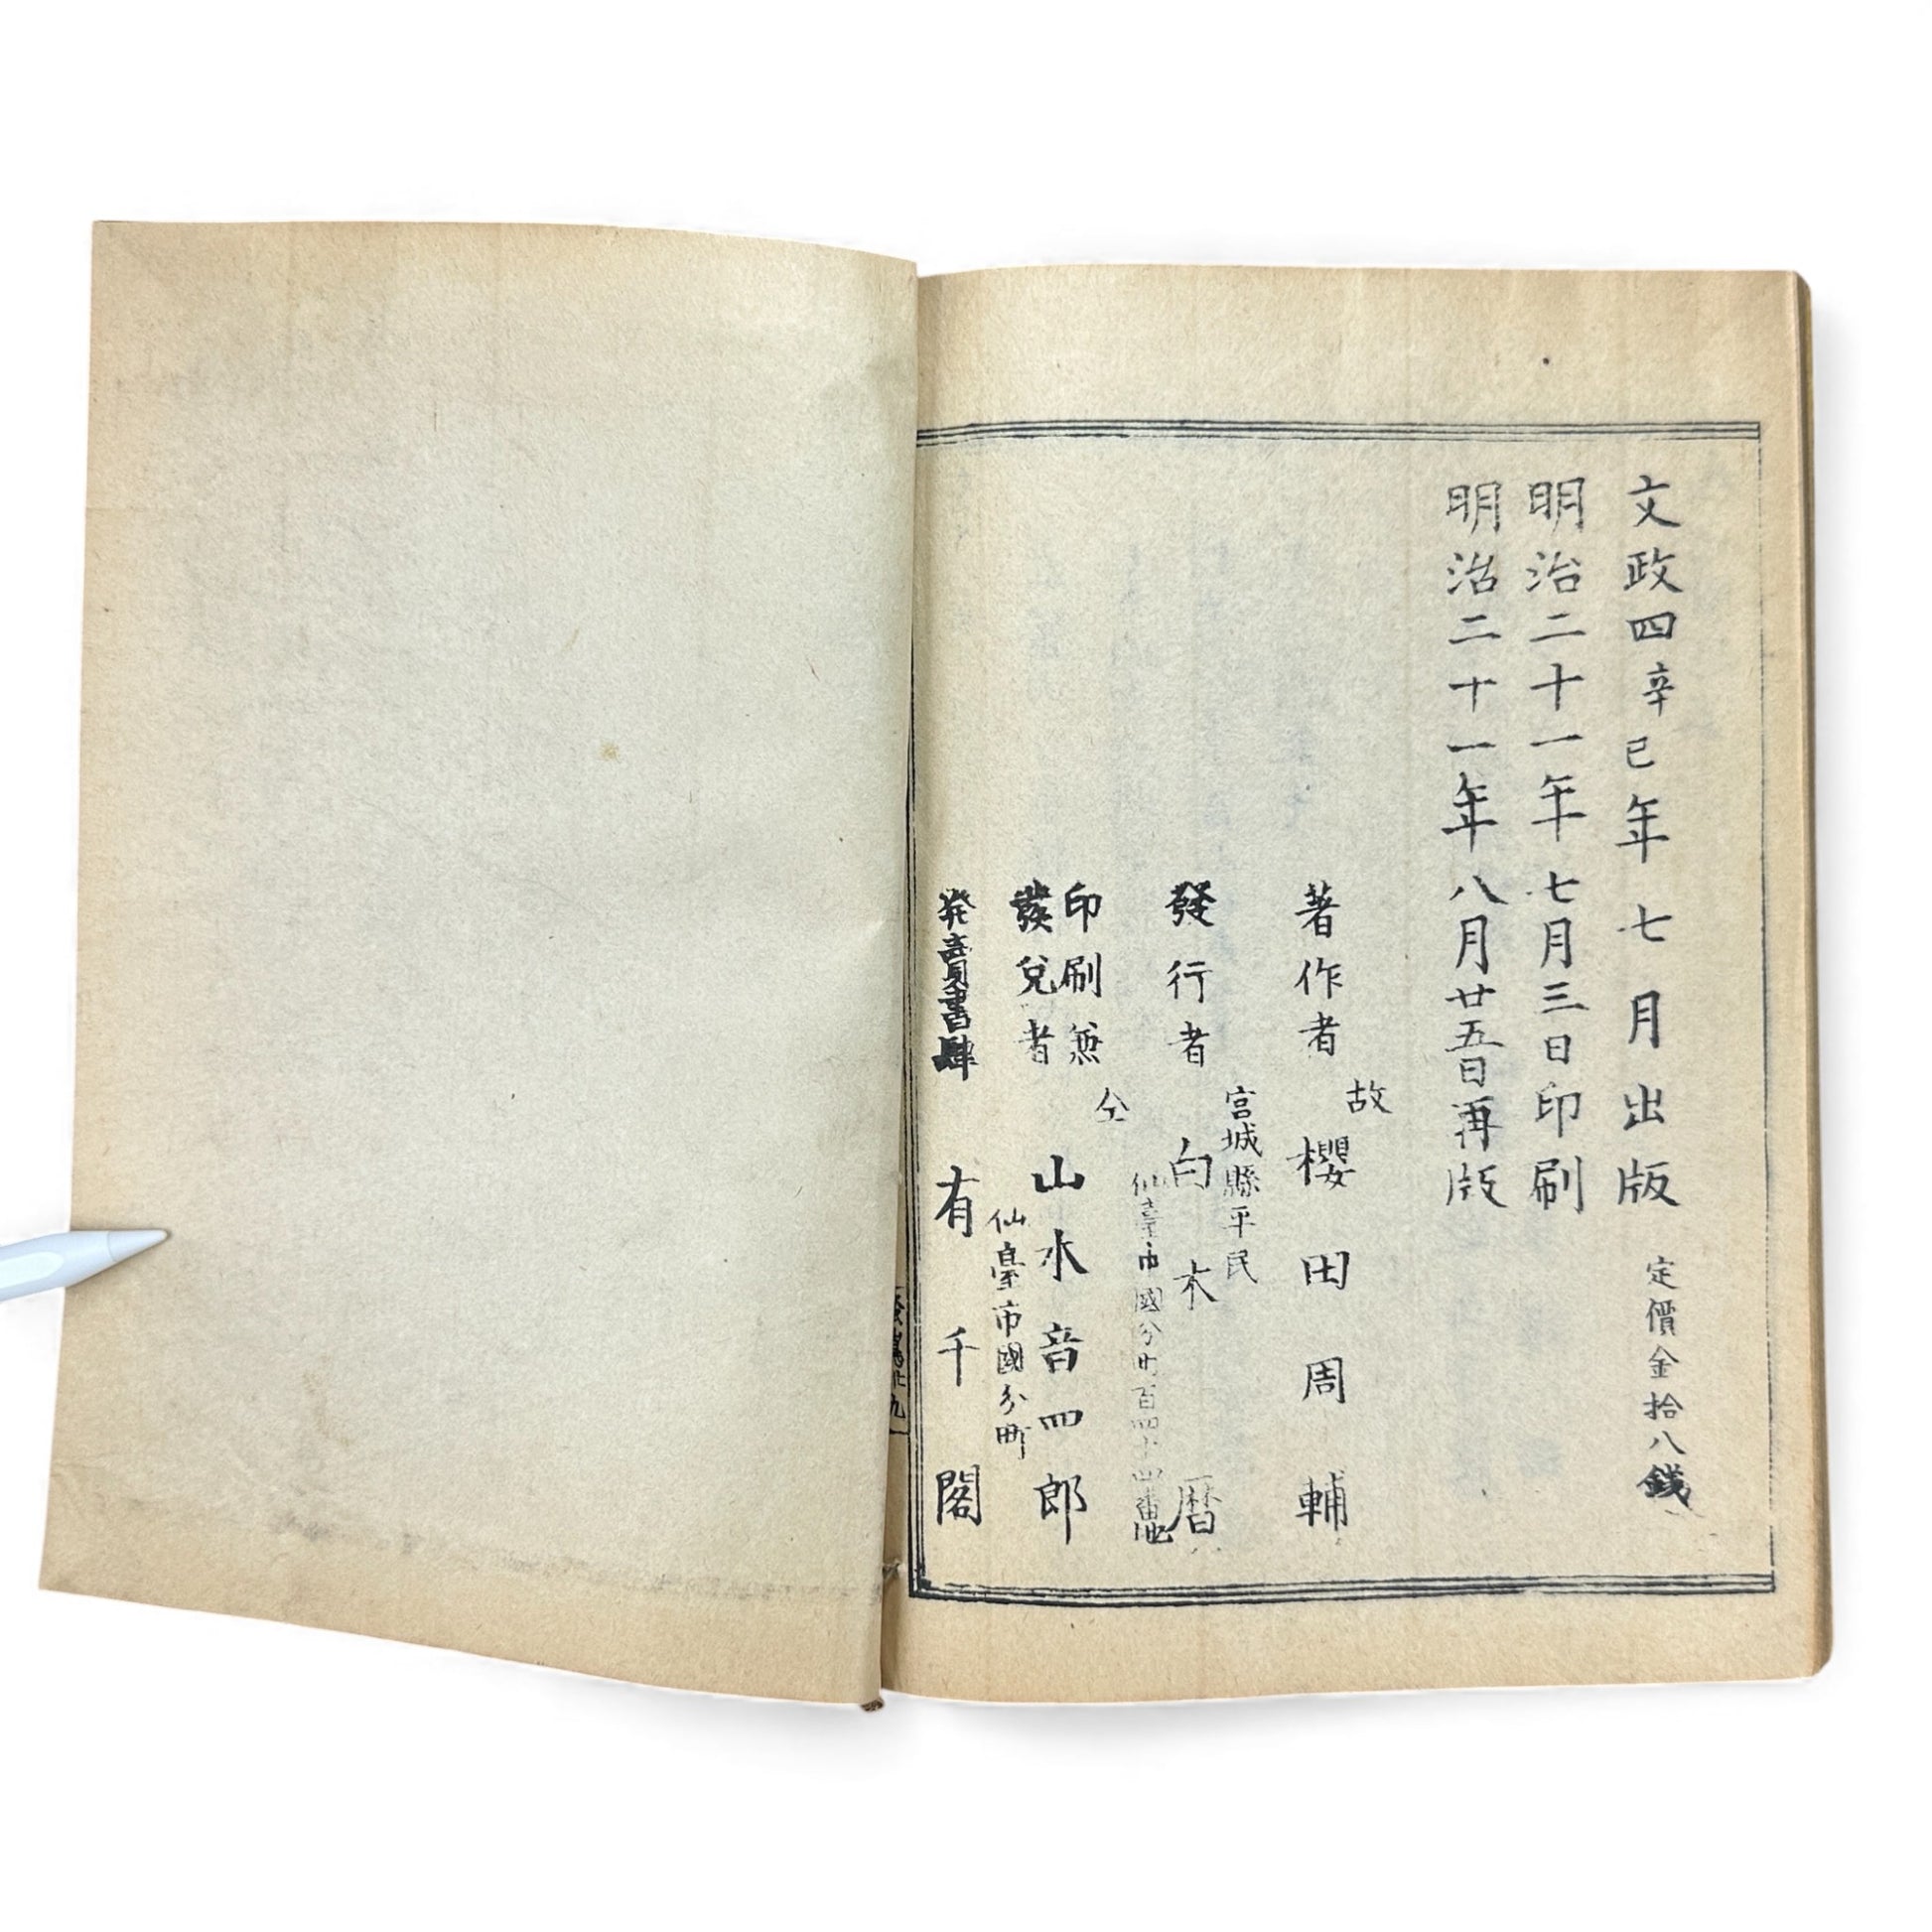 文政四辛巳年七月出版
定價金拾八錢
明治二十一年七月三日印刷
明治二十一年八月廿五日再版
著作者
故
櫻田周輔
發行者
宮城縣平民
白木暦
仙臺市國分町百四十四番地
印刷兼
發兌者
仝
山水音四郎
仙臺市國分町
発賣書肆
有千閣